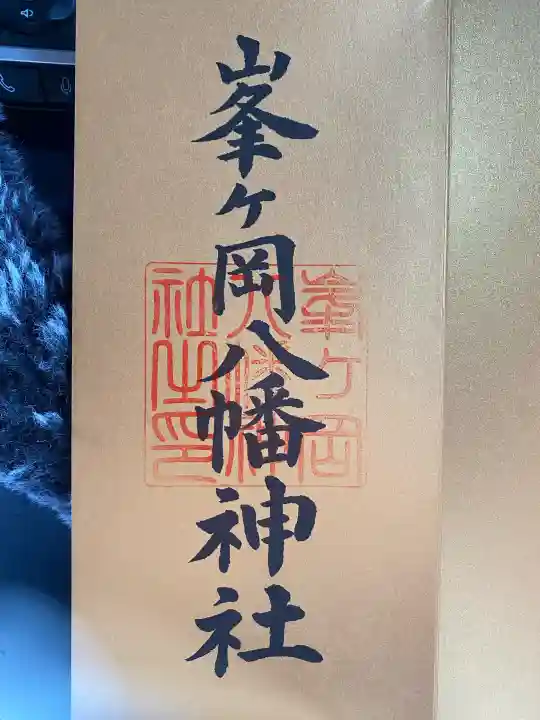 峯ヶ岡八幡神社
峯ヶ岡
八幡神
社之印